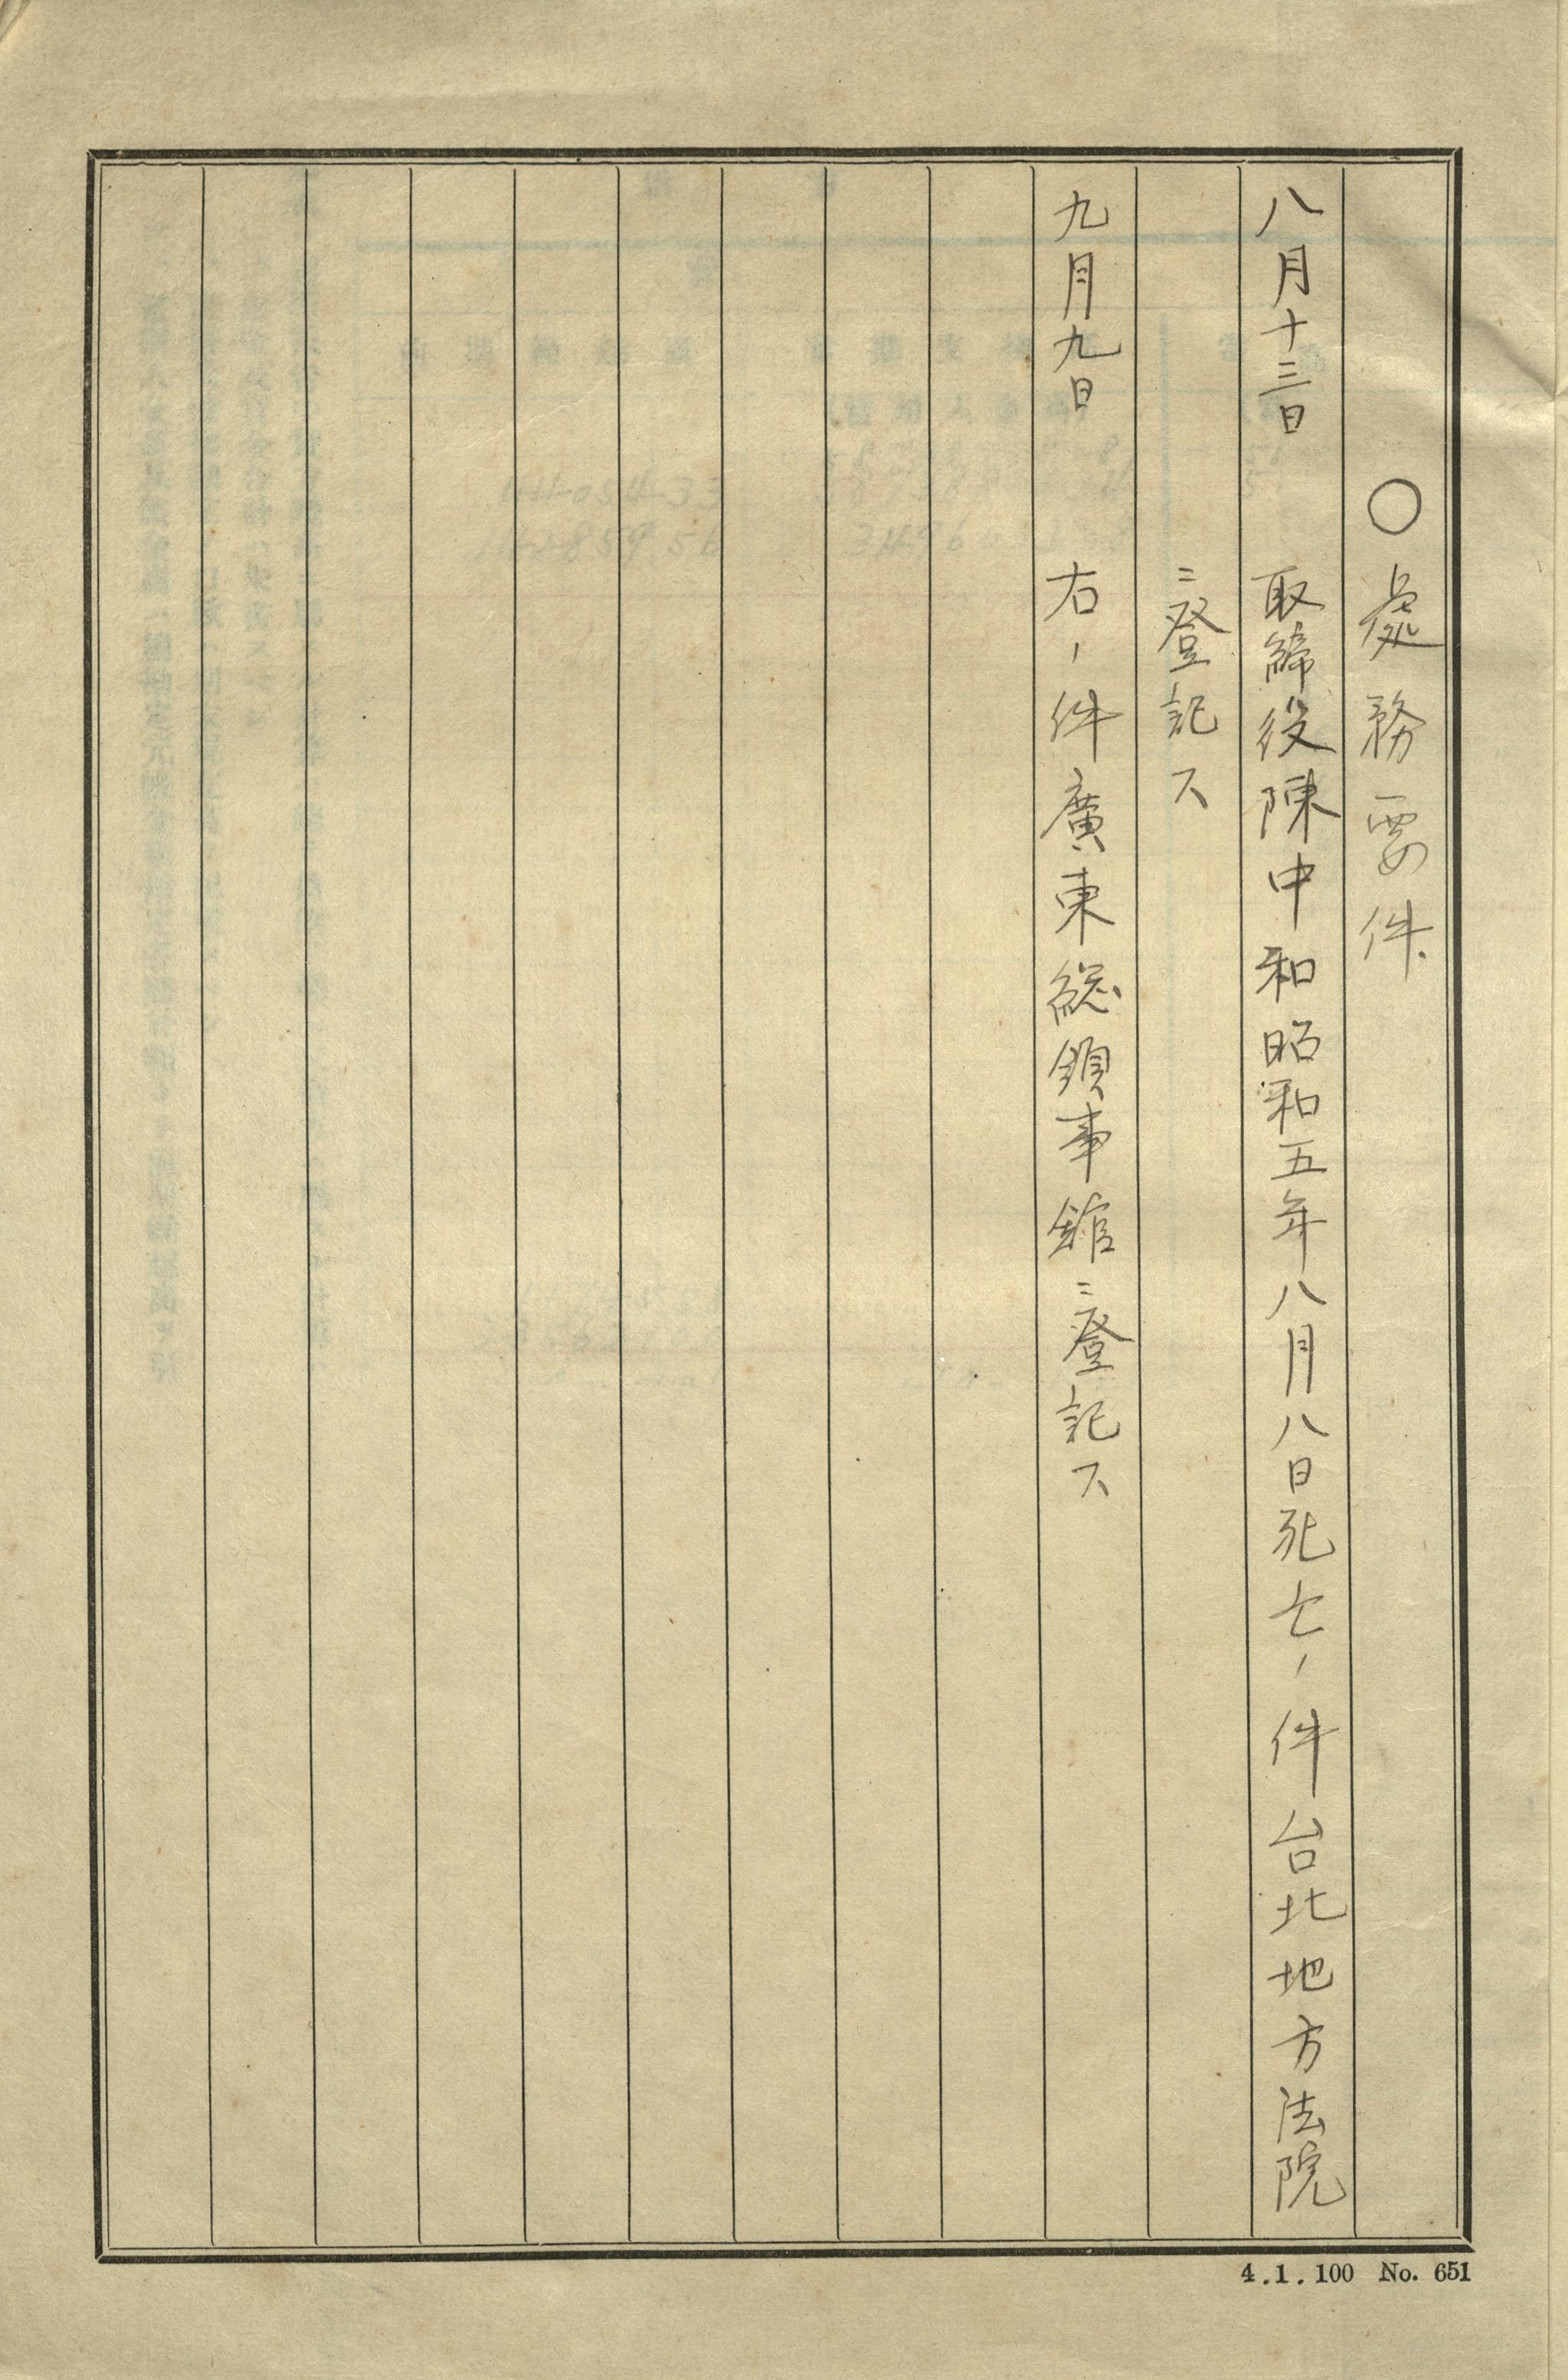 ○處務要件
八月十三日 取締役陳中和昭和五年八月八日死亡ノ件台北地方法院
ニ登記ス
九月九日 右ノ件廣東総領事館ニ登記ス
4.1.100 No. 651